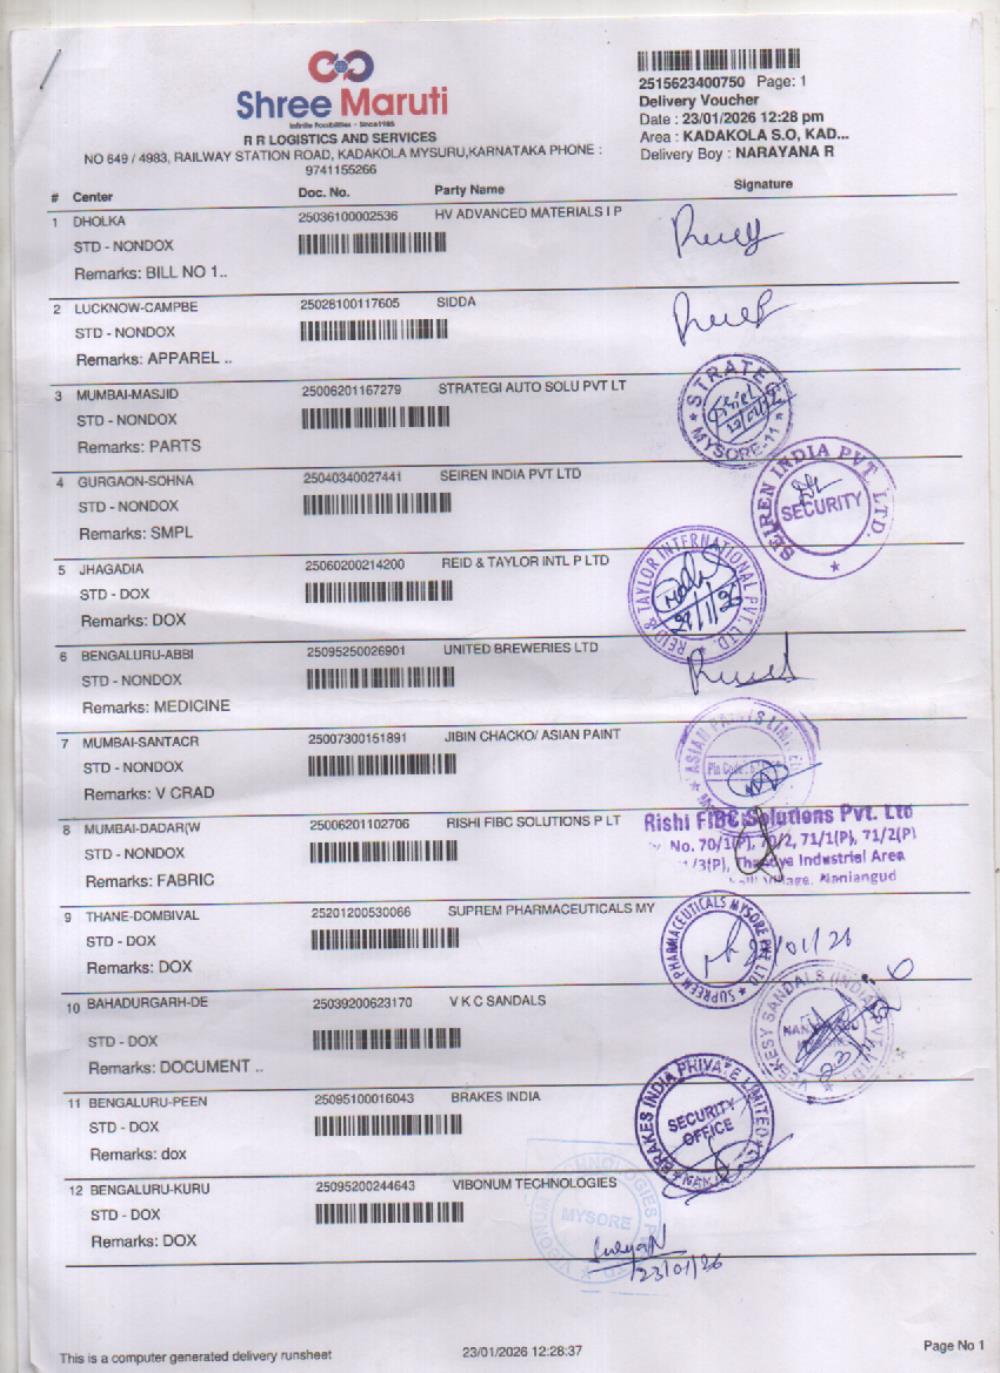 Shree Maruti
Infinite Possibilities - Since 1985
R R LOGISTICS AND SERVICES
NO 649 / 4983, RAILWAY STATION ROAD, KADAKOLA MYSURU,KARNATAKA PHONE :
9741155266
2515623400750 Page: 1
Delivery Voucher
Date : 23/01/2026 12:28 pm
Area : KADAKOLA S.O, KAD...
Delivery Boy : NARAYANA R
# Center Doc. No. Party Name Signature
1 DHOLKA 25036100002536 HV ADVANCED MATERIALS I P
STD - NONDOX
Remarks: BILL NO 1..
2 LUCKNOW-CAMPBE 25028100117605 SIDDA
STD - NONDOX
Remarks: APPAREL ..
3 MUMBAI-MASJID 25006201167279 STRATEGI AUTO SOLU PVT LT
STD - NONDOX
Remarks: PARTS
MYSORE-11
4 GURGAON-SOHNA 25040340027441 SEIREN INDIA PVT LTD
STD - NONDOX
Remarks: SMPL
SEIREN INDIA PVT. LTD.
SECURITY
5 JHAGADIA 25060200214200 REID & TAYLOR INTL P LTD
STD - DOX
Remarks: DOX
REID & TAYLOR INTERNATIONAL PVT. LTD.
6 BENGALURU-ABBI 25095250026901 UNITED BREWERIES LTD
STD - NONDOX
Remarks: MEDICINE
7 MUMBAI-SANTACR 25007300151891 JIBIN CHACKO/ ASIAN PAINT
STD - NONDOX
Remarks: V CRAD
ASIAN PAINTS
Pin Code
8 MUMBAI-DADAR(W 25006201102706 RISHI FIBC SOLUTIONS P LT
STD - NONDOX
Remarks: FABRIC
Rishi FIBC Solutions Pvt. Ltd
No. 70/1(P), 70/2, 71/1(P), 71/2(P)
/3(P), Thandya Industrial Area
Village, Nanjangud
9 THANE-DOMBIVAL 25201200530066 SUPREM PHARMACEUTICALS MY
STD - DOX
Remarks: DOX
SUPREEM PHARMACEUTICALS MYSORE PVT LTD
23/01/26
10 BAHADURGARH-DE 25039200623170 V K C SANDALS
STD - DOX
Remarks: DOCUMENT ..
SANDALS (INDIA) PVT LTD
11 BENGALURU-PEEN 25095100016043 BRAKES INDIA
STD - DOX
Remarks: dox
BRAKES INDIA PRIVATE LIMITED
SECURITY
OFFICE
12 BENGALURU-KURU 25095200244643 VIBONUM TECHNOLOGIES
STD - DOX
Remarks: DOX
VIBONUM TECHNOLOGIES
MYSORE
23/01/26
This is a computer generated delivery runsheet 23/01/2026 12:28:37 Page No 1